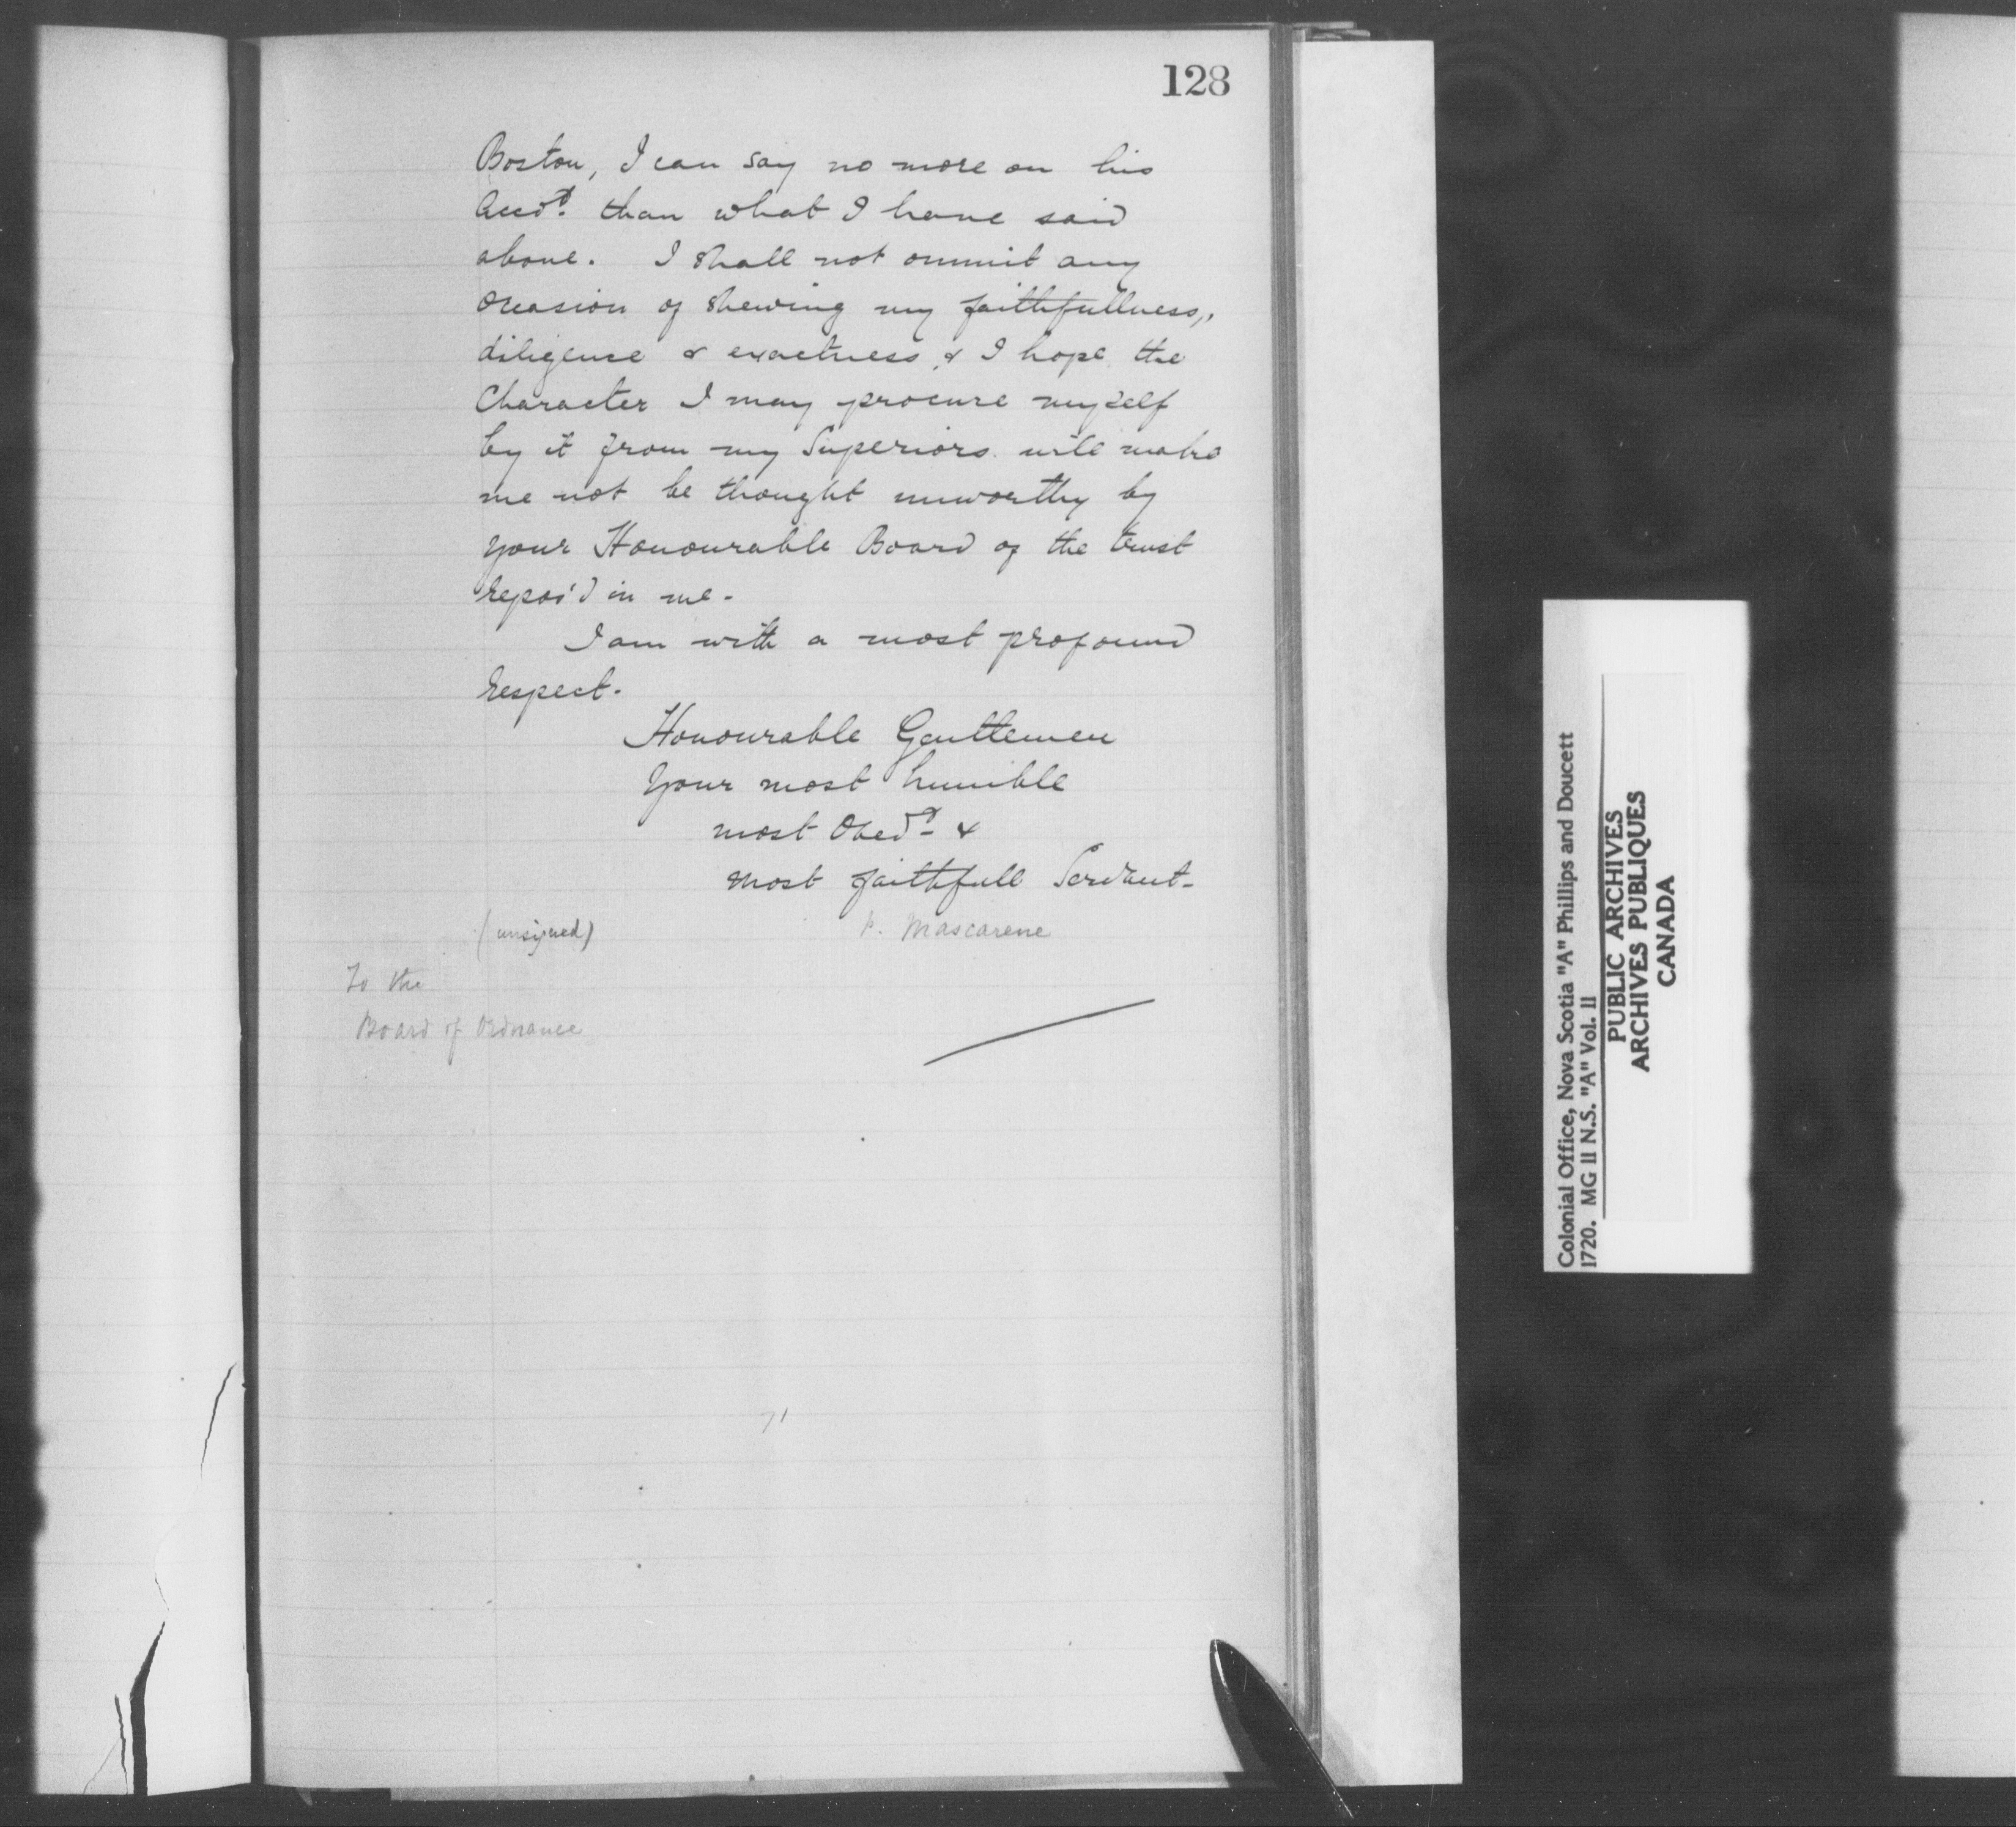 128
Boston, I can say no more on his
Accot. than what I have said
above. I shall not ommit any
occasion of shewing my faithfullness,
diligence & exactness, & I hope the
Character I may procure myself
by it from my Superiors will make
me not be thought unworthy by
your Honourable Board of the trust
repos'd in me.
I am with a most profound
respect.
Honourable Gentlemen
Your most humble
most Obedt. &
most faithfull Servant-
(unsigned) P. Mascarene
To the
Board of Ordnance
71
Colonial Office, Nova Scotia "A" Phillips and Doucett
1720. MG 11 N.S. "A" Vol. 11
PUBLIC ARCHIVES
ARCHIVES PUBLIQUES
CANADA